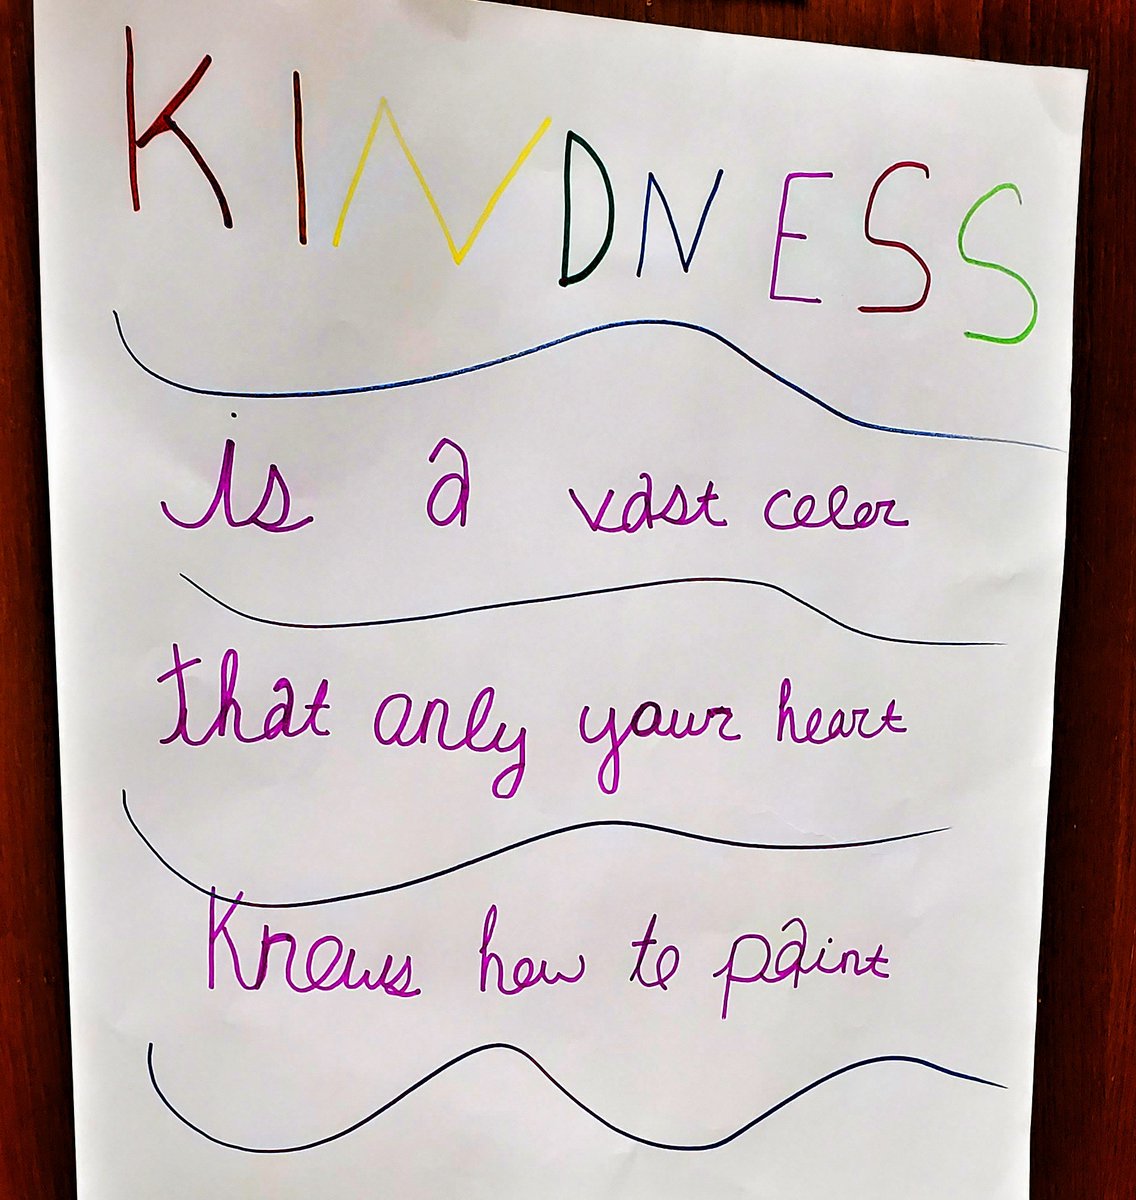 KINDNESS
is a vast color
that only your heart
Knows how to paint